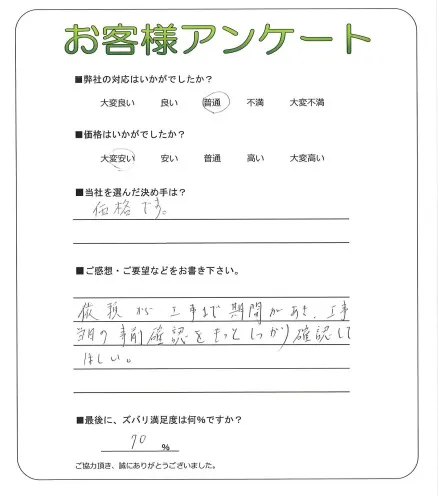 お客様アンケート
■弊社の対応はいかがでしたか？
大変良い 良い 普通 不満 大変不満
■価格はいかがでしたか？
大変安い 安い 普通 高い 大変高い
■当社を選んだ決め手は？
価格です。
■ご感想・ご要望などをお書き下さい。
依頼から工事まで期間があき、工事
当日の事前確認をもっとしっかり確認して
ほしい。
■最後に、ズバリ満足度は何%ですか？
70 %
ご協力頂き、誠にありがとうございました。